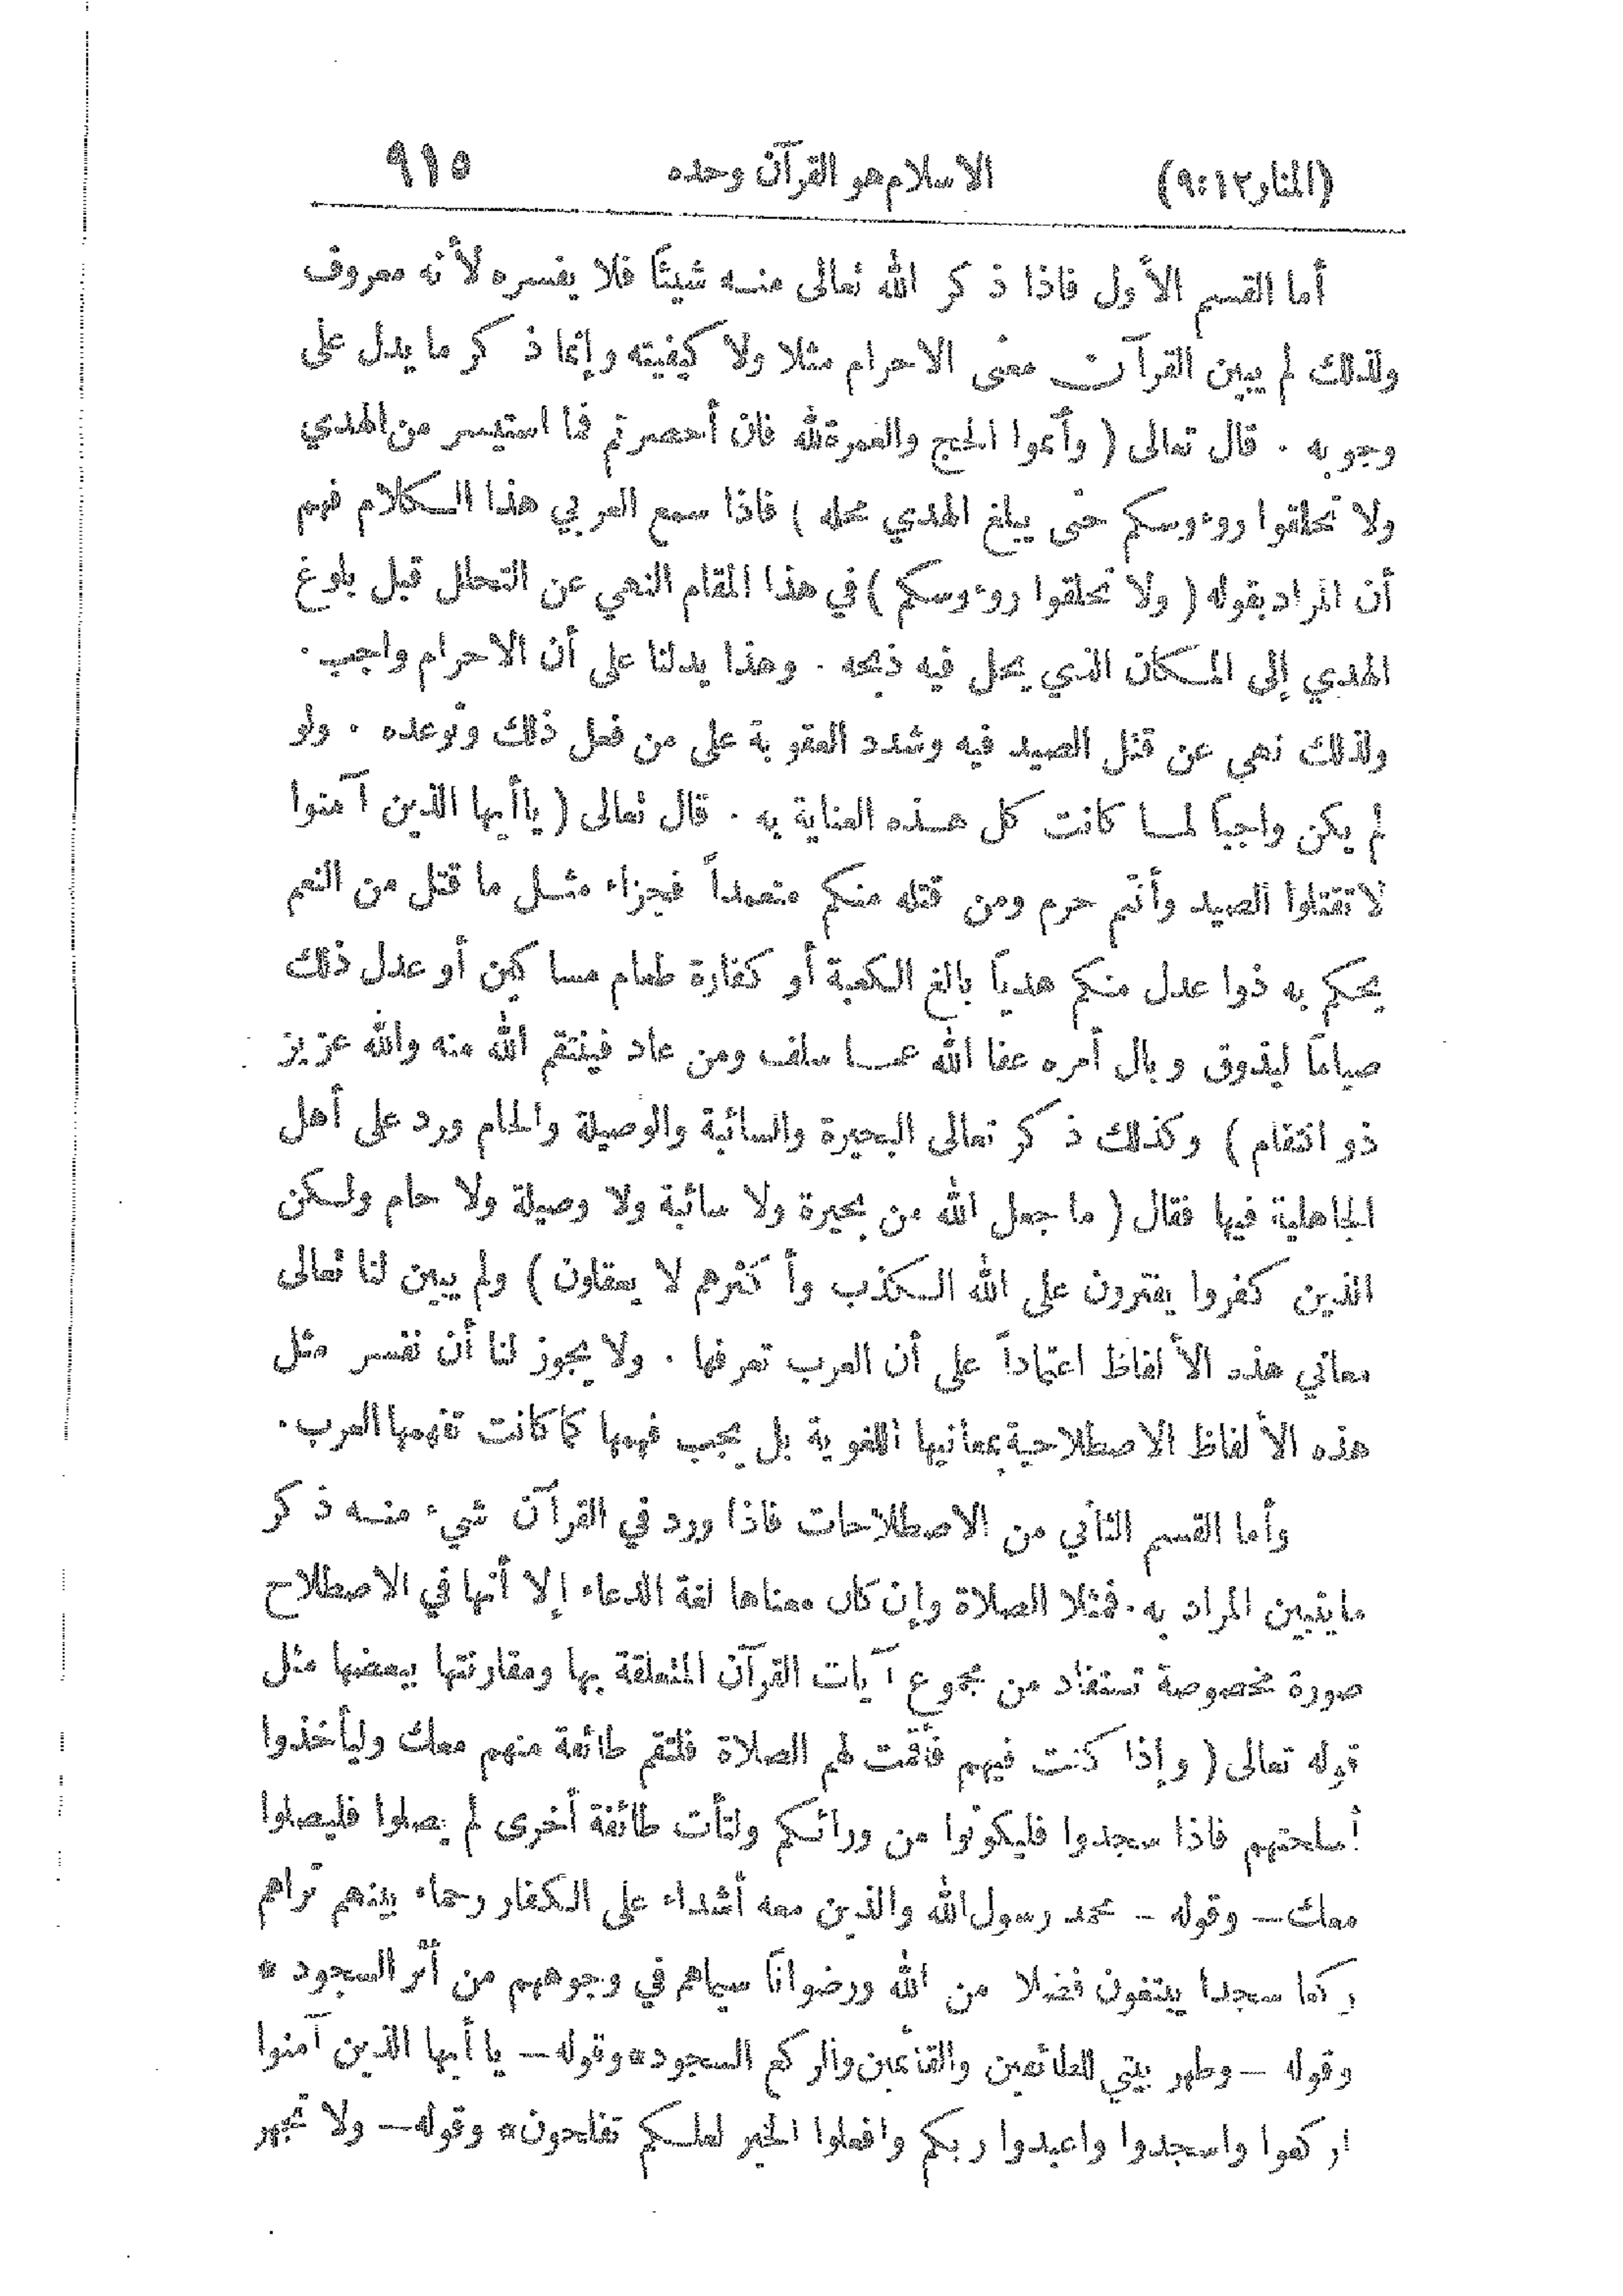 (المنار١٢:٩) الاسلام هو القرآن وحده ٩١٥
أما القسم الأول فاذا ذكر الله تعالى منه شيئاً فلا يفسره لأنه معروف
ولذلك لم يبين القرآن معنى الاحرام مثلا ولا كيفيته وإنما ذكر ما يدل على
وجوبه . قال تعالى ( وأتموا الحج والعمرة لله فان أحصرتم فما استيسر من الهدي
ولا تحلقوا روءوسكم حتى يبلغ الهدي محله ) فاذا سمع العربي هذا الكلام فهم
أن المراد بقوله ( ولا تحلقوا روءوسكم ) في هذا المقام النهي عن التحلل قبل بلوغ
الهدي إلى المكان الذي يحل فيه ذبحه . وهذا يدلنا على أن الاحرام واجب .
ولذلك نهى عن قتل الصيد فيه وشدد العقوبة على من فعل ذلك وتوعده . ولو
لم يكن واجباً لما كانت كل هذه العناية به . قال تعالى ( ياأيها الذين آمنوا
لاتقتلوا الصيد وأنتم حرم ومن قتله منكم متعمداً فجزاء مثل ما قتل من النعم
يحكم به ذوا عدل منكم هدياً بالغ الكعبة أو كفارة طعام مساكين أو عدل ذلك
صياماً ليذوق وبال أمره عفا الله عما سلف ومن عاد فينتقم الله منه والله عزيز
ذو انتقام ) وكذلك ذكر تعالى البحيرة والسائبة والوصيلة والحام ورد على أهل
الجاهلية فيها فقال ( ما جعل الله من بحيرة ولا سائبة ولا وصيلة ولا حام ولكن
الذين كفروا يفترون على الله الكذب وأكثرهم لا يعقلون ) ولم يبين لنا تعالى
معاني هذه الألفاظ اعتماداً على أن العرب تعرفها . ولا يجوز لنا أن نفسر مثل
هذه الألفاظ الاصطلاحية بمعانيها اللغوية بل يجب فهمها كما كانت تفهمها العرب .
وأما القسم الثاني من الاصطلاحات فاذا ورد في القرآن شيء منه ذكر
مايتبين المراد به . فمثلا الصلاة وإن كان معناها لغة الدعاء إلا أنها في الاصطلاح
صورة مخصوصة تستفاد من مجموع آيات القرآن المتعلقة بها ومقارنتها ببعضها مثل
قوله تعالى ( وإذا كنت فيهم فأقمت لهم الصلاة فلتقم طائفة منهم معك وليأخذوا
أسلحتهم فاذا سجدوا فليكونوا من ورائكم ولتأت طائفة أخرى لم يصلوا فليصلوا
معك — وقوله — محمد رسول الله والذين معه أشداء على الكفار رحماء بينهم تراهم
ركعا سجدا يبتغون فضلا من الله ورضواناً سيماهم في وجوههم من أثر السجود *
وقوله — وطهر بيتي للطائفين والقائمين والركع السجود * وقوله — يا أيها الذين آمنوا
اركعوا واسجدوا واعبدوا ربكم وافعلوا الخير لعلكم تفلحون * وقوله — ولا تجهر